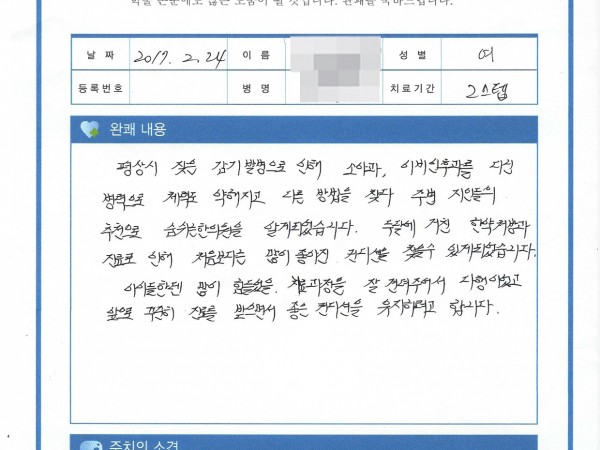 학술 논문에도 많은 도움이 될 것입니다. 완쾌를 축하드립니다.
날 짜 2017. 2. 24 이 름 성 별 여
등록번호 병 명 치료기간 2스텝
완쾌 내용
평상시 잦은 감기 발병으로 인해 소아과, 이비인후과를 다닌
병력으로 체력도 약해지고 다른 방법을 찾다 주변 지인들의
추천으로 숨쉬는한의원을 알게되었습니다. 두달에 거친 한약처방과
진료로 인해 처음보다는 많이 좋아진 컨디션을 찾을수 있게되었습니다.
아이들한텐 많이 힘들었을 치료과정을 잘 견뎌주어서 다행이었고
앞으로 꾸준히 진료를 받으면서 좋은 컨디션을 유지하려고 합니다.
주치의 소견